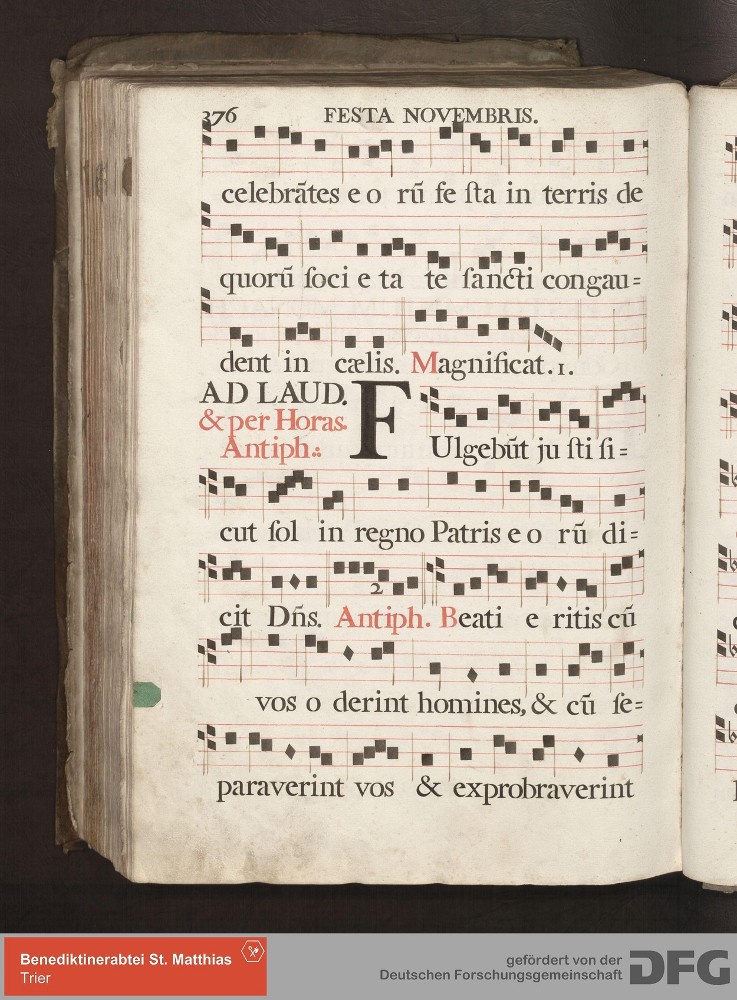 376 FESTA NOVEMBRIS.
celebrãtes e o rũ fe ſta in terris de
quorũ ſoci e ta te ſancti congau=
dent in cælis. Magnificat. 1.
AD LAUD.
& per Horas.
Antiph::
FUlgebũt ju ſti ſi=
cut ſol in regno Patris e o rũ di=
2
cit Dñs. Antiph. Beati e ritis cũ
vos o derint homines, & cũ ſe=
paraverint vos & exprobraverint
Benediktinerabtei St. Matthias
Trier
gefördert von der
Deutschen Forschungsgemeinschaft
DFG